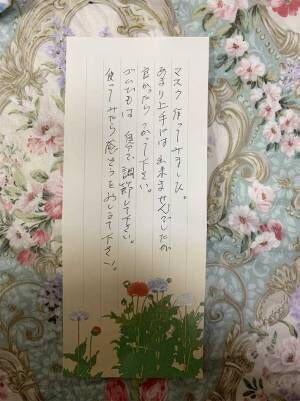 マスク作ってみました。
あまり上手には出来ませんでしたが
良かったら使って下さい。
ゴムひもは自分で調節して下さい。
使ってみたら感想をおしえて下さい。